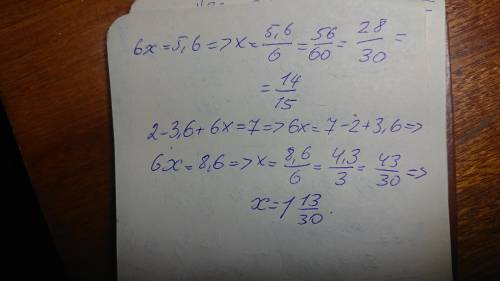 6x=5,6=>x=5,6/6=56/60=28/30=
=14/15
2-3,6+6x=7=>6x=7-2+3,6=>
6x=8,6=>x=8,6/6=4,3/3=43/30=>
x=1 13/30.